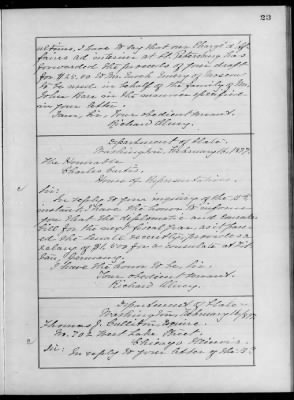 23
ultimo, I have to say that our Chargé d'Af-
faires ad interim at St. Petersburg has
forwarded the proceeds of your draft
for $25.00 to Mr. Enoch Emery of
to be used in behalf of the family of Mr.
in the manner specified
in your letter.
I am, Sir, Your obedient servant.
Richard Olney.
Department of State.
Washington, February 16, 1897.
The Honorable
Charles Curtis,
House of Representatives.
Sir:
In reply to your inquiry of the
instant I have the honor to inform
you that the diplomatic and consular
bill for the next fiscal year as it pass-
ed the Senate recently, provides a
salary of $1,500 for a consulate at
Germany.
I have the honor to be, Sir,
Your obedient servant.
Richard Olney.
Department of State.
Washington, February 16, 1897.
Thomas J. Esquire.
No. 702 West Lake Street.
Chicago Illinois
Sir: In reply to your letter of the 23